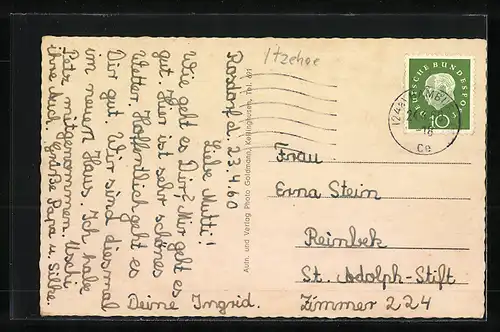 Rosdorf d. 23.4.60
Liebe Mutti!
Wie geht es Dir? Mir geht es
gut. Hier ist sehr schönes
Wetter. Hoffentlich geht es
Dir gut. Wir sind diesmal
im neuen Haus. Ich habe
Petz mitgenommen. Uschi
ihre auch. Grüße Papa u. Silke.
Deine Ingrid.
Aufn. und Verlag Photo Goldmann, Kellinghusen, Tel. 691
Itzehoe
DEUTSCHE BUNDESPOST
10
Frau
Erna Stein
Reinbek
St. Adolph-Stift
Zimmer 224